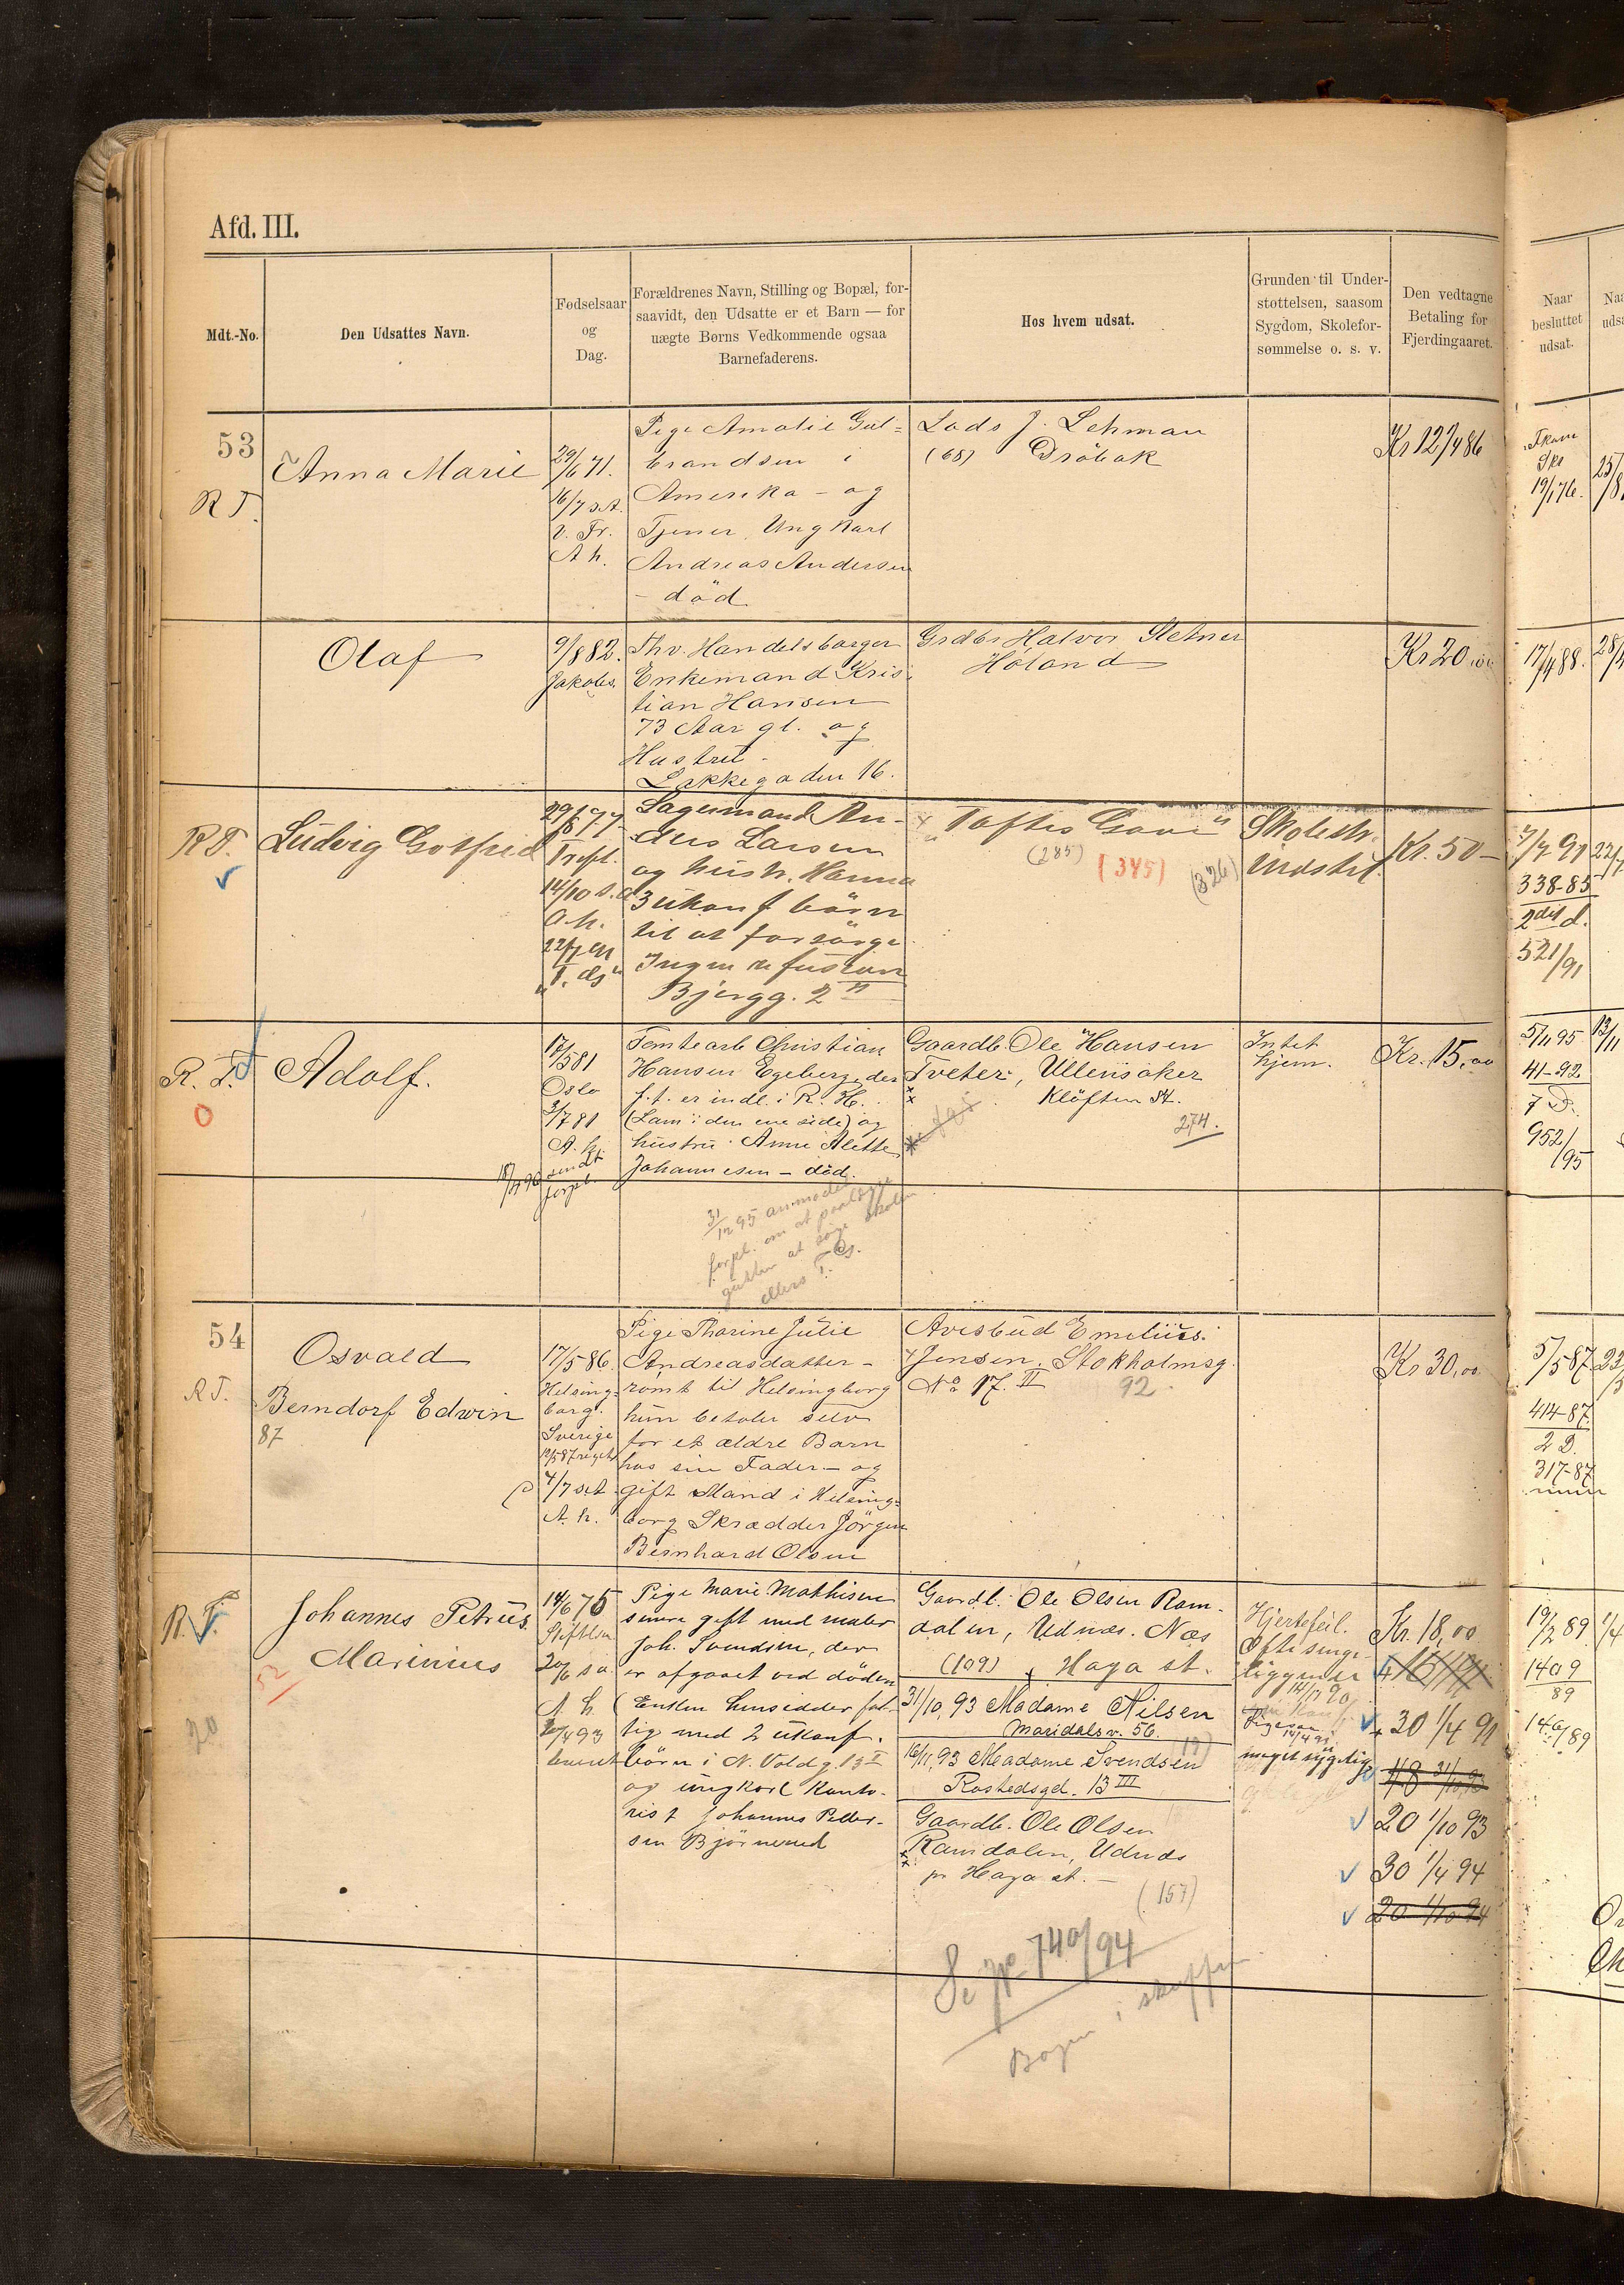 Afd. III.
Mdt.-No.
Den Udsattes Navn.
Fødselsaar
og
Dag.
Forældrenes Navn, Stilling og Bopæl, for-
saavidt, den Udsatte er et Barn — for
uægte Børns Vedkommende ogsaa
Barnefaderens.
Hos hvem udsat.
Grunden til Under-
støttelsen, saasom
Sygdom, Skolefor-
sømmelse o. s. v.
Den vedtagne
Betaling for
Fjerdingaaret.
Naar
besluttet
udsat.
53
R T.
Anna Marie
29/6 71.
16/7 s.A.
v. Fr.
A h.
Pige Amalie Gul-
brandsen i
Amerika - og
Tjener, Ungkarl
Andreas Andersen
- död
Lods J. Lehman
(68) Dröbak
Kr 12
19/1 76.
Olaf
9/8 82.
Jakobs.
Thv. Handelsborger
Enkemand Kris-
tian Hansen
73 Aar gl. og
Hustru -
Lakkegaden 16.
Grdbr Halvor
Höland
Kr 20,00
17/4 88.
R T.
Ludvig Gotfried
29/8 77
Trefl.
14/10 s.a
a.h.
Lagermand An-
ders Larsen
og hustr. Hanna
3 ukonf börn
til at forsörge
Ingen refusion
Bjergg. 2
"Toftes Gave"
(285)
(345)
(326)
Skolesk.
Kr. 50 -
7/7 91
338-85
2det d.
521/91
R. T.
0
Adolf.
17/5 81
Oslo
3/7 81
A. h.
Tomtearb Christian
Hansen Egeberg, der
f.t. er indl. i R. H.
(Lam i den ene side) og
hustru Anne Alette
Johannesen - död.
Gaardb. Ole Hansen
Tveter, Ullensaker
Klöften St.
274.
Intet
hjem.
Kr. 15,00
5/11 95
41-92
7 D.
952/95
31/12 95 anmodet
forpl. om at paalægge
gutten at söge skolen
ellers T. Ds.
54
R T.
Osvald
Berndorf Edwin
87
17/5 86.
Helsing-
borg.
Sverige
4/7 s.A
A. h.
Pige Thorine Julie
Andreasdatter -
römt til Helsingborg
hun betaler selv
for et ældre Barn
hos sin Fader - og
gift Mand i Helsing-
borg Skrædder Jörgen
Bernhard Olsen
Avisbud Emelius
Jensen. Stokholmsg.
No 17. II
92
Kr 30,00
5/5 87
414-87
2 D.
317-87
R. T.
52
20
Johannes Petrus
Marinius
14/6 75
Stiftelsen
20/6 s a
A. h
20/4 93
Pige Marie Mathisen
senere gift med maler
Joh. Svendsen, der
er afgaaet ved döden
(Enken hensidder fat-
tig med 2 ukonf.
börn i N. Voldg. 13 I
og ungkarl Konto-
rist Johannes Peder-
sen Björnerud
Gaardb. Ole Olsen Ram-
dalen, Udnæs. Næs
(109) Haga st.
31/10, 93 Madame Nilsen
Maridalsv. 56.
16/11, 93 Madame Svendsen
Rostedsgd. 13 III
Gaardb. Ole Olsen
Ramdalen, Udnæs
pr Haga st. -
(157)
Hjertefeil.
Ofte senge-
liggende
14/11 90
meget sygelig
Kr. 18,00
30 1/4 91
18 31/10 93
20 1/10 93
30 1/4 94
20 1/10 94
19/2 89
140/89
Se jr. 740/94
Bogen i skuffen